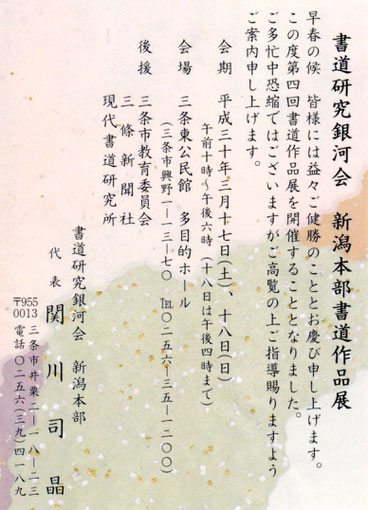 書道研究銀河会　新潟本部書道作品展
早春の候　皆様には益々ご健勝のこととお慶び申し上げます。
この度第四回書道作品展を開催することとなりました。
ご多忙中恐縮ではございますがご高覧の上ご指導賜りますよう
ご案内申し上げます。
会　期　平成三十年三月十七日(土)、十八日(日)
午前十時〜午後六時（十八日は午後四時まで）
会　場　三条東公民館　多目的ホール
（三条市興野一ー一三ー七〇　℡〇二五六ー三五ー一二〇〇）
後　援　三条市教育委員会
三條新聞社
現代書道研究所
書道研究銀河会　新潟本部
代表　関川司晶
〒955-0013　三条市井栗二ー一八ー二三
電話　〇二五六(三九)四一八九